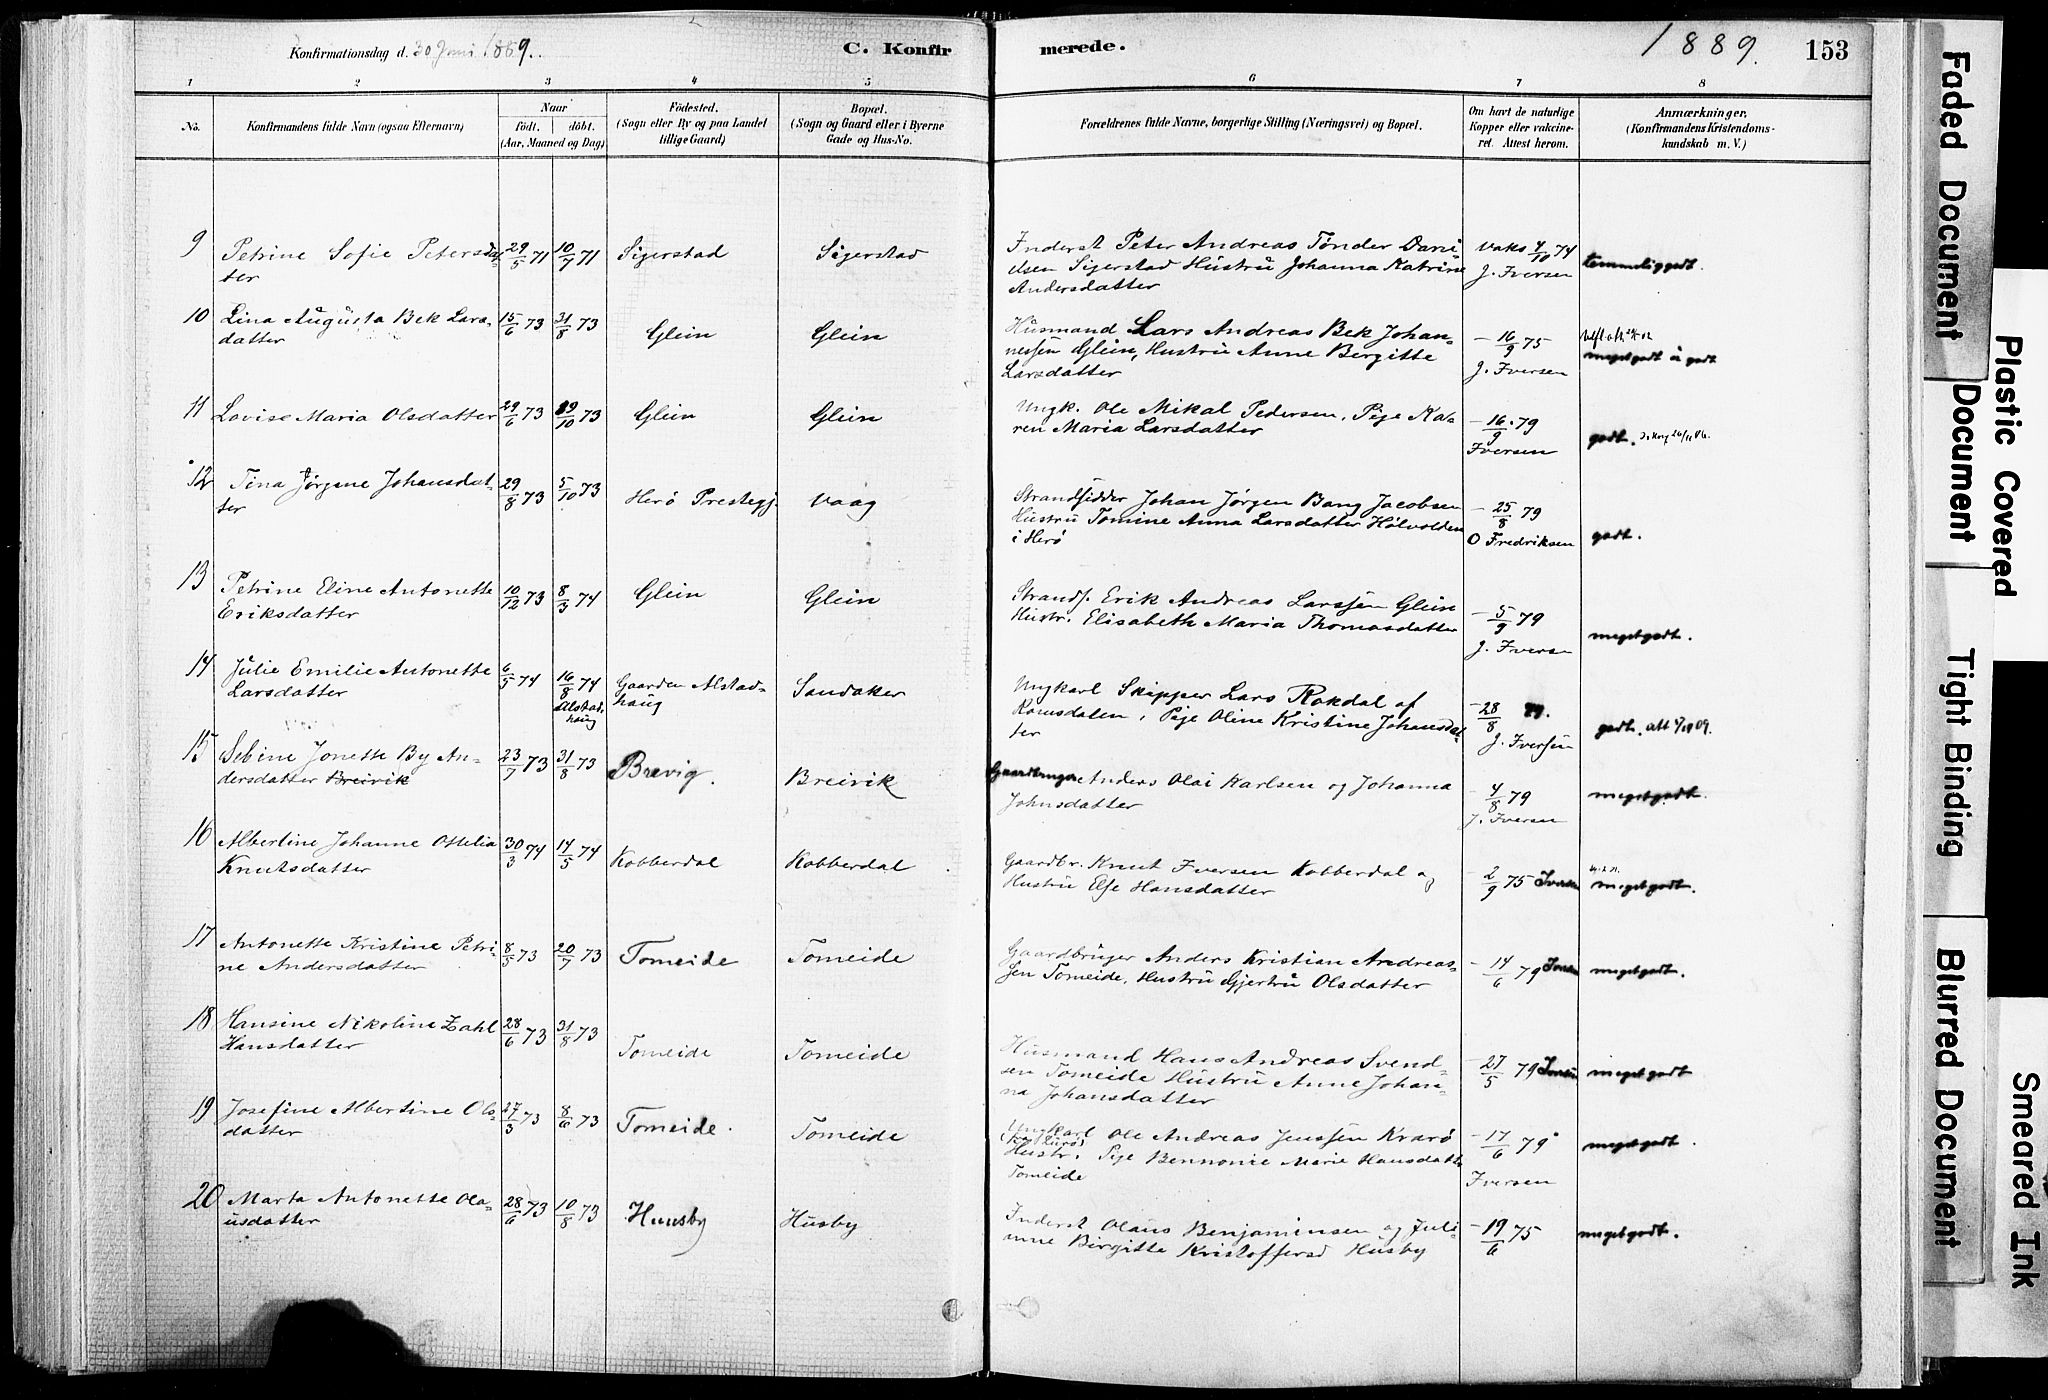 Konfirmationsdag d. 30 Juni 1889.
C. Konfirmerede.
1889.
153
1 2 3 4 5 6 7 8
No.
Konfirmandens fulde Navn (ogsaa Efternavn)
Naar
födt. döbt.
(Aar, Maaned og Dag)
Födested.
(Sogn eller By og paa Landet
tillige Gaard)
Bopæl.
(Sogn og Gaard eller i Byerne
Gade og Hus-No.
Forældrenes fulde Navne, borgerlige Stilling (Næringsvei) og Bopæl.
Om havt de naturlige
Kopper eller vakcine-
ret. Attest herom.
Anmærkninger.
(Konfirmandens Kristendoms-
kundskab m. V.)
9 Petrine Sofie Petersdat-
ter
29/5 71 10/7 71 Sigerstad Sigerstad
Inderst Peter Andreas Tønder Dani-
elsen Sigerstad Hustru Johanna Katrine
Andersdatter
Vaks 4/10 74
J. Iversen
temmelig godt.
10 Lina Augusta Bek Lars-
datter
15/6 73 31/8 73 Glein Glein
Husmand Lars Andreas Bek Johan-
nessen Glein, Hustru Anne Bergitte
Larsdatter
- 16/9 75
J. Iversen
meget godt à godt
11 Lovise Maria Olsdatter 29/6 73 19/10 73 Glein Glein
Ungk. Ole Mikal Pedersen, Pige Ka-
ren Maria Larsdatter
- 16/9 79
Iversen
godt.
12 Tina Jørgine Johansdat-
ter
29/8 73 5/10 73 Herö Prestegj. Vaag
Strandsidder Johan Jørgen Bang Jacobsen
Hustru Tomine Anna Larsdatter Hölvolden
i Herö
- 25/8 79
O Fredriksen
godt.
13 Petrine Eline Antonette
Eriksdatter
10/12 73 8/3 74 Glein Glein
Strands. Erik Andreas Larssen Glein
Hustr. Elisabeth Maria Thomasdatter
- 5/9 79
J. Iversen
meget godt.
14 Julie Emilie Antonette
Larsdatter
6/5 74 16/8 74
Alstad-
haug
Gaarden Alstad-
haug
Sandaker
Ungkarl Skipper Lars Rokdal af
Romsdalen, Pige Oline Kristine Johansdat-
ter
- 28/8
J. Iversen
godt.
15 Sebine Jonette By An-
dersdatter Breivik
23/7 73 31/8 73 Brevig. Breivik
Gaardbruger Anders Olai Karlsen og Johanna
Johnsdatter
- 4/8 79
J. Iversen
meget godt.
16 Albertine Johanne Ottelia
Knutsdatter
30/3 74 14/5 74 Kobberdal Kobberdal
Gaardbr. Knut Iversen Kobberdal og
Hustru Else Hansdatter
- 2/9 75 Iversen
meget godt.
17 Antonette Kristine Petri-
ne Andersdatter
8/5 73 20/7 73 Tomeide Tomeide
Gaardbruger Anders Kristian Andreas-
sen Tomeide, Hustru Gjertru Olsdatter
- 14/6 79 Iversen
meget godt.
18 Hansine Nikoline Zahl
Hansdatter
28/6 73 31/8 73 Tomeide Tomeide
Husmand Hans Andreas Svend-
sen Tomeide Hustru Anne Johan-
na Johansdatter
- 27/5 79 Iversen
meget godt
19 Josefine Albertine Ols-
datter
27/3 73 8/6 73 Tomeide. Tomeide
Ungkarl Ole Andreas Jenssen Kvarö
Hustr. Pige Bennonie Marie Hansdatter
Tomeide
- 17/6 79
Iversen
meget godt.
20 Marta Antonette Ola-
usdatter
28/6 73 10/8 73 Huusby Husby
Inderst Olaus Benjaminsen og Juli-
anne Birgitte Kristoffersd Husby
- 19/6 75
meget godt.
Faded Document
Plastic Covered
Document
Tight Binding
Blurred Document
Smeared Ink